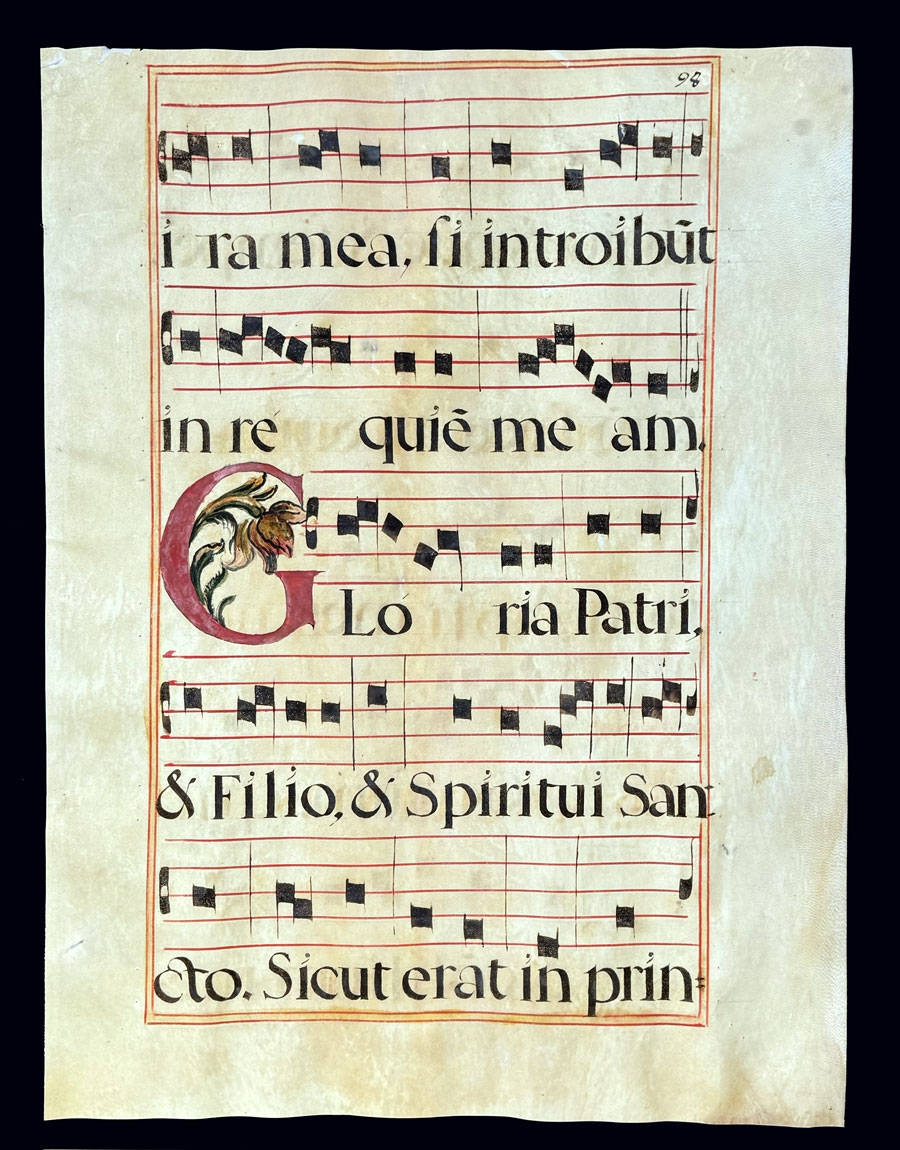 98
i ra mea, ſi introibũt
in ré quiẽ me am.
GLó ria Patri,
& Filio, & Spiritui San=
cto. Sicut erat in prin=